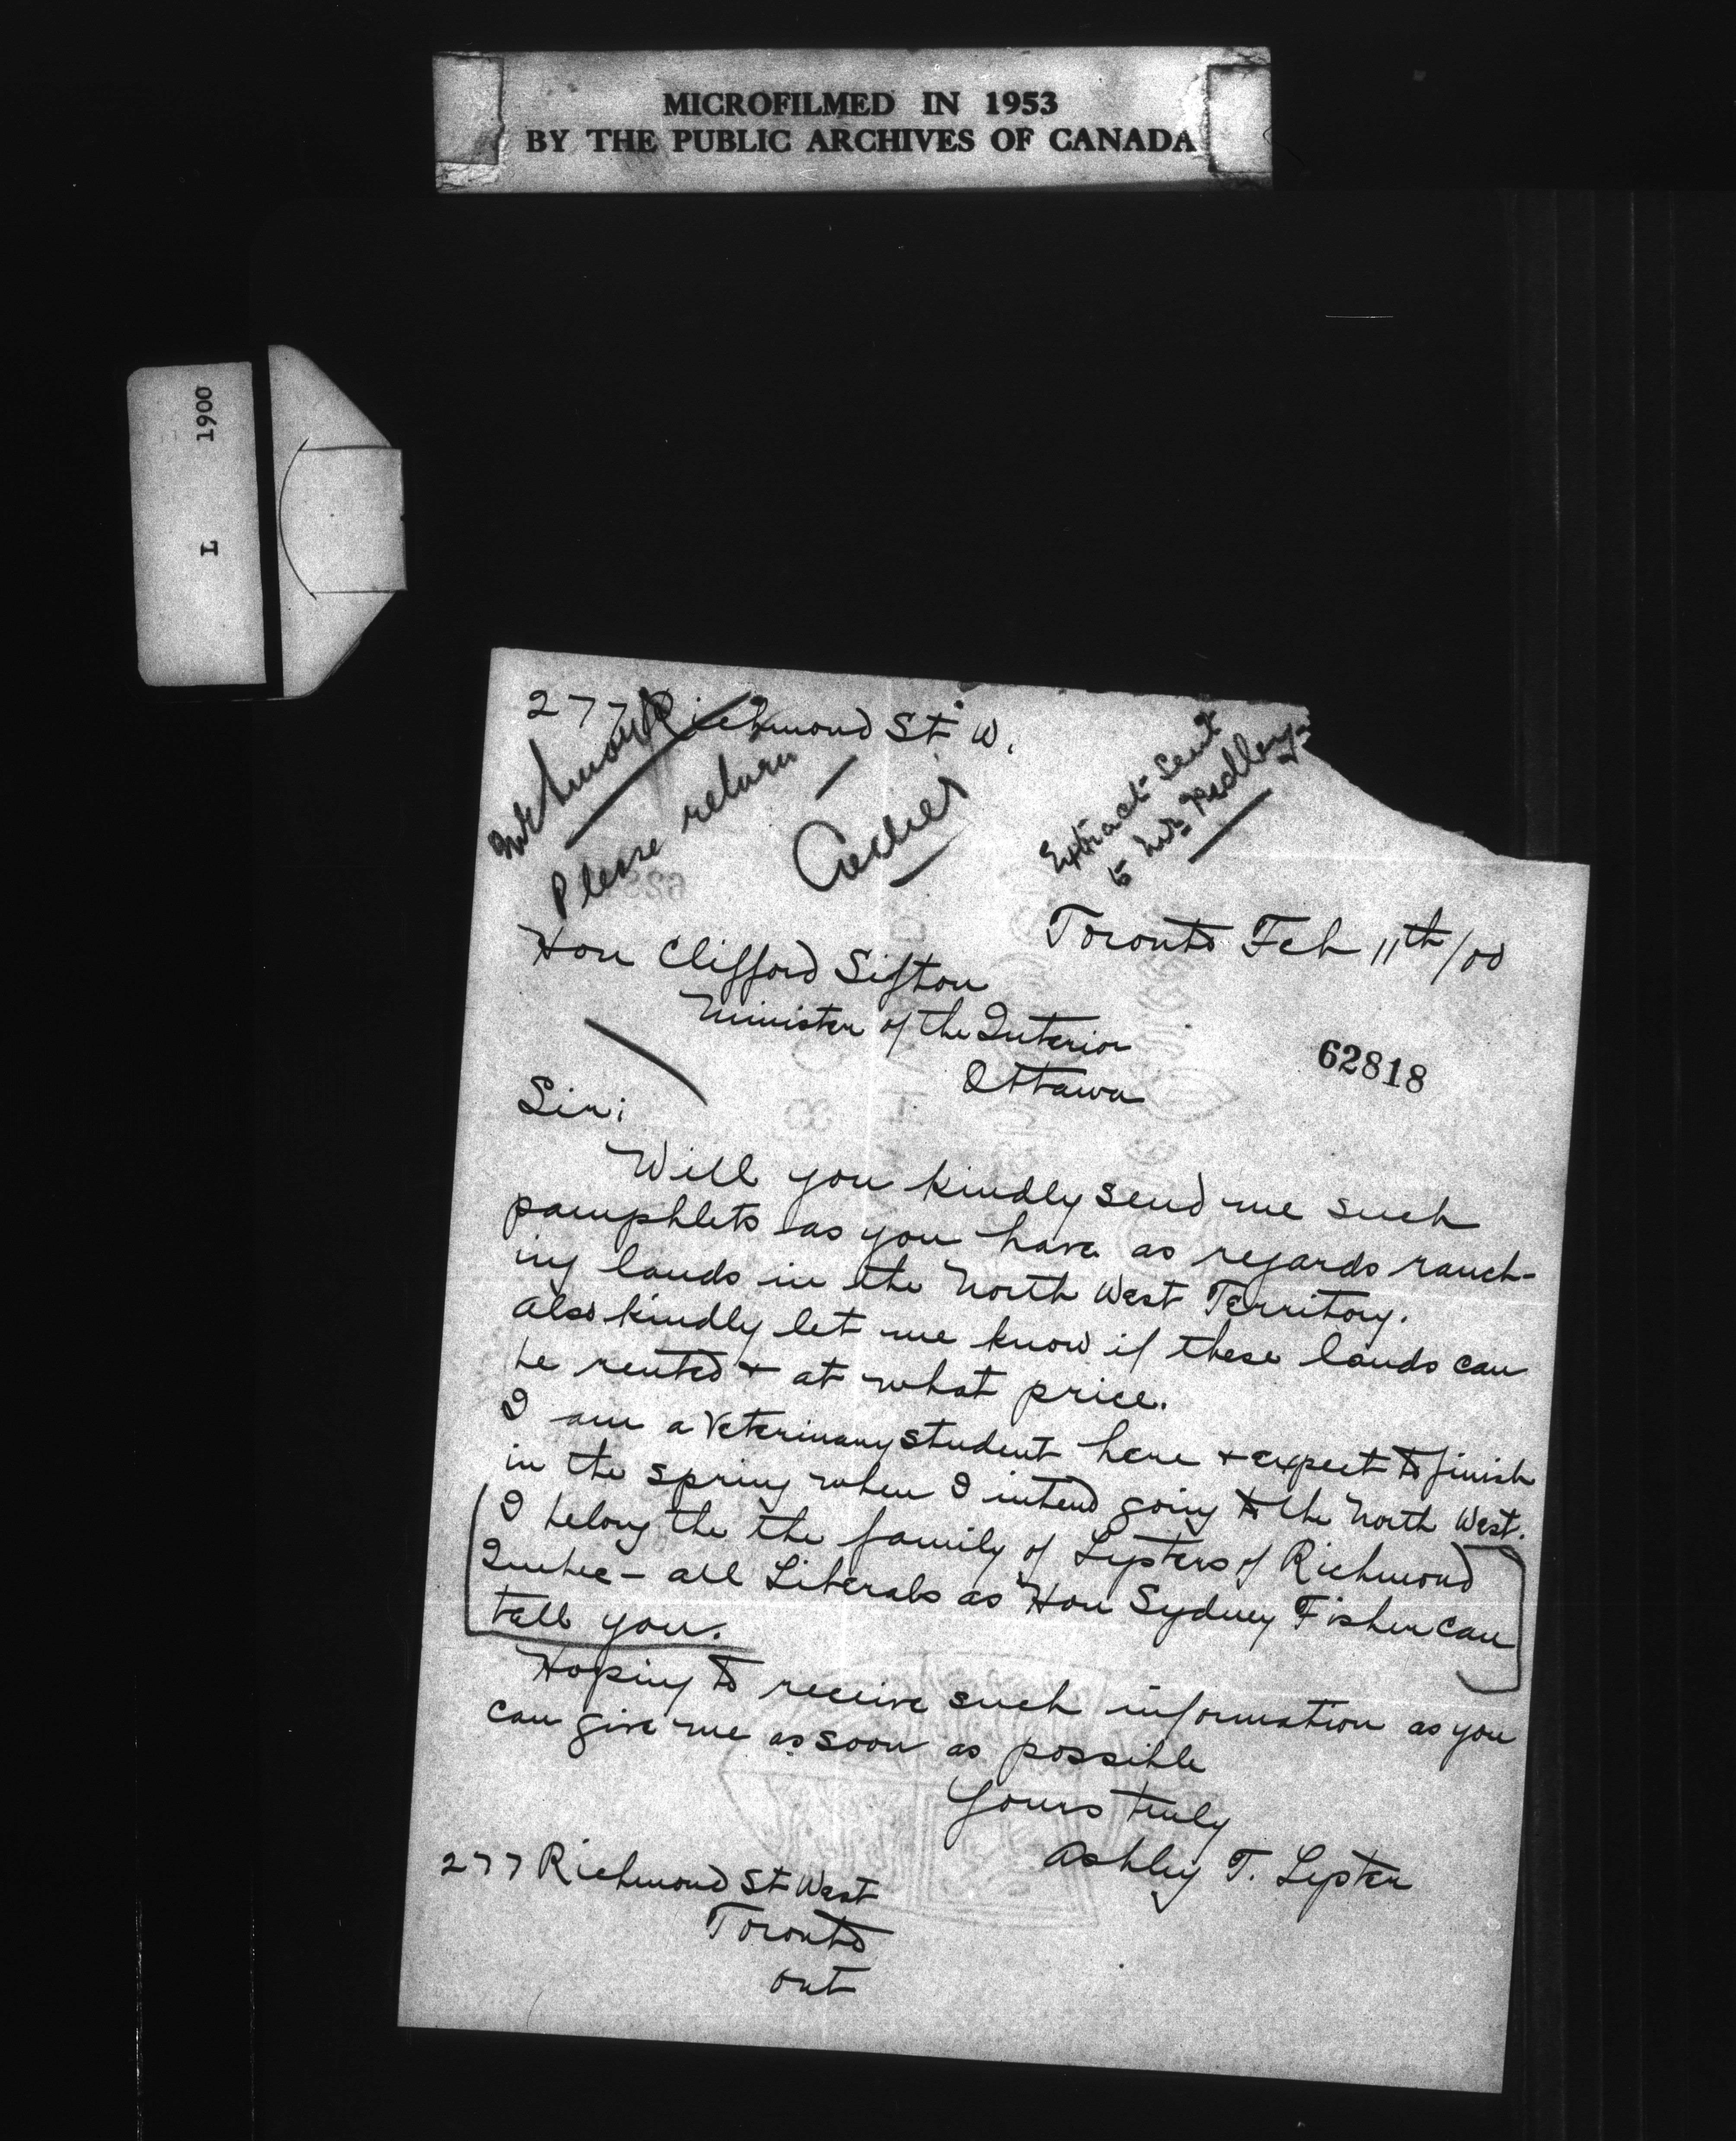 MICROFILMED IN 1953
BY THE PUBLIC ARCHIVES OF CANADA
L 1900
277 Richmond St W.
Please return
Extract Sent
to Mr Pedley
Toronto Feb 11th/00
Hon Clifford Sifton
Minister of the Interior
Ottawa
62818
Sir;
Will you kindly send me such
pamphlets as you have as regards ranch-
ing lands in the North West Territory.
Also kindly let me know if these lands can
be rented + at what price.
I am a Veterinary student here + expect to finish
in the spring when I intend going to the North West.
I belong the the family of Lysters of Richmond
Quebec - all Liberals as Hon Sydney Fisher can
tell you.
Hoping to receive such information as you
can give me as soon as possible
Yours truly
Ashley T. Lyster
277 Richmond St West
Toronto
Ont